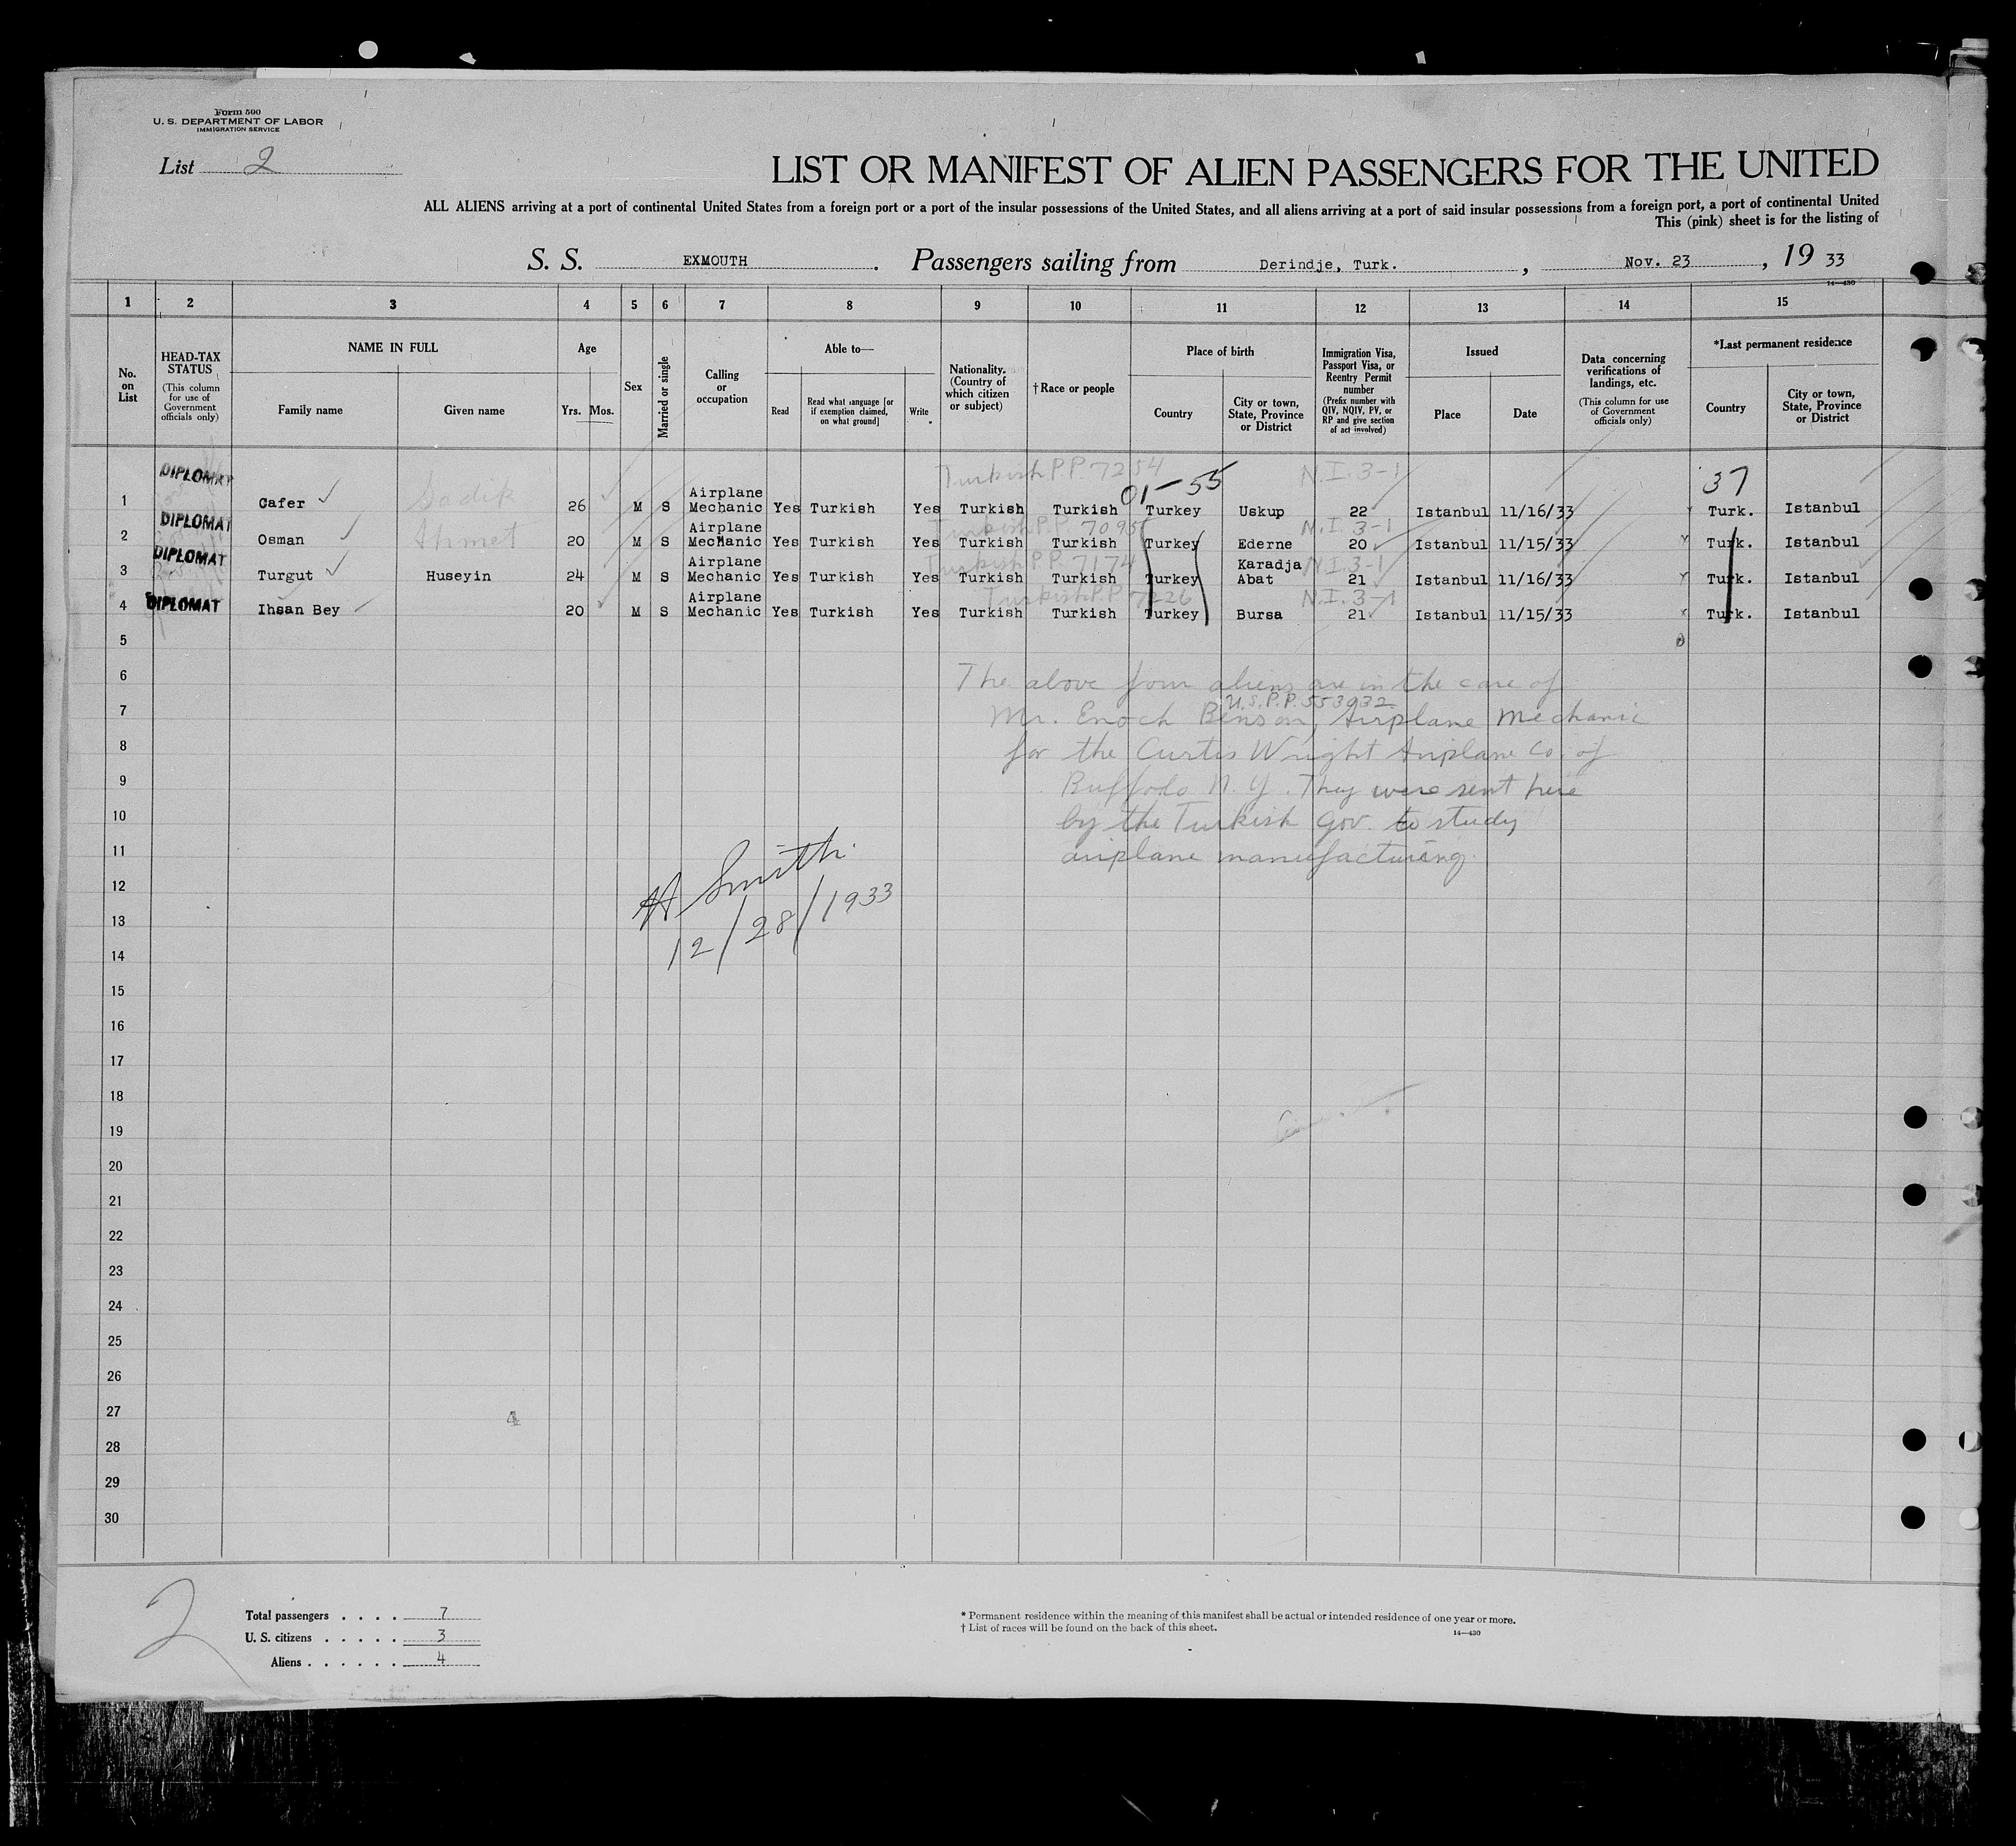 Form 500
U. S. DEPARTMENT OF LABOR
IMMIGRATION SERVICE
List 2
LIST OR MANIFEST OF ALIEN PASSENGERS FOR THE UNITED
ALL ALIENS arriving at a port of continental United States from a foreign port or a port of the insular possessions of the United States, and all aliens arriving at a port of said insular possessions from a foreign port, a port of continental United
This (pink) sheet is for the listing of
S. S. EXMOUTH. Passengers sailing from Derindje, Turk., Nov. 23, 19 33
14—430
1 2 3 4 5 6 7 8 9 10 11 12 13 14 15
No. on List
HEAD-TAX STATUS (This column for use of Government officials only)
NAME IN FULL
Family name Given name
Age
Yrs. Mos.
Sex
Married or single
Calling or occupation
Able to—
Read Read what language [or if exemption claimed, on what ground] Write
Nationality. (Country of which citizen or subject)
†Race or people
Place of birth
Country City or town, State, Province or District
Immigration Visa, Passport Visa, or Reentry Permit number (Prefix number with QIV, NQIV, PV, or RP and give section of act involved)
Issued
Place Date
Data concerning verifications of landings, etc. (This column for use of Government officials only)
*Last permanent residence
Country City or town, State, Province or District
Turkish P.P. 7254 N.I. 3-1
01-55 37
1 DIPLOMAT Cafer Sadik 26 M S Airplane Mechanic Yes Turkish Yes Turkish Turkish Turkey Uskup 22 Istanbul 11/16/33 Turk. Istanbul
Turkish P.P. 7095 N.I. 3-1
2 DIPLOMAT Osman Ahmet 20 M S Airplane Mechanic Yes Turkish Yes Turkish Turkish Turkey Ederne 20 Istanbul 11/15/33 Turk. Istanbul
Turkish P.P. 7174 N.I. 3-1
3 DIPLOMAT Turgut Huseyin 24 M S Airplane Mechanic Yes Turkish Yes Turkish Turkish Turkey Karadja Abat 21 Istanbul 11/16/33 Turk. Istanbul
Turkish P.P. 7226 N.I. 3-1
4 DIPLOMAT Ihsan Bey 20 M S Airplane Mechanic Yes Turkish Yes Turkish Turkish Turkey Bursa 21 Istanbul 11/15/33 Turk. Istanbul
5
6 The above four aliens are in the care of
U.S.P.P. 553932
7 Mr. Enoch Benson, Airplane Mechanic
8 for the Curtis Wright Airplane Co. of
9 Buffalo N.Y. They were sent here
10 by the Turkish Gov. to study
11 airplane manufacturing.
H Smith
12
12/28/1933
13
14
15
16
17
18
19
20
21
22
23
24
25
26
27
4
28
29
30
2
Total passengers . . . . 7
U. S. citizens . . . . . 3
Aliens . . . . . . 4
* Permanent residence within the meaning of this manifest shall be actual or intended residence of one year or more.
† List of races will be found on the back of this sheet.
14—430